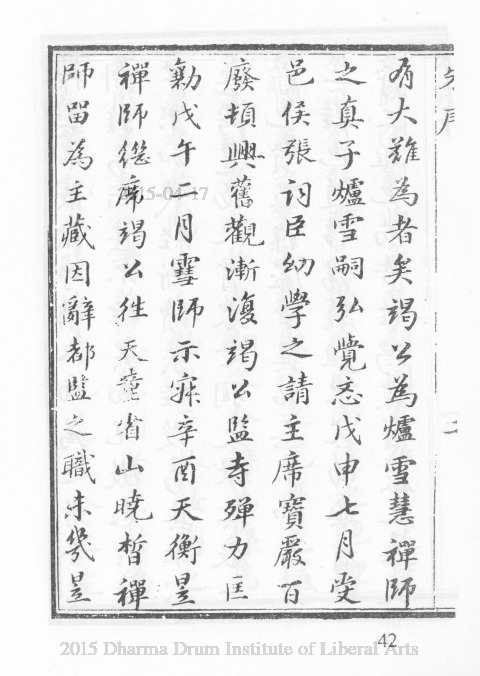 有大難為者矣竭公為爐雪慧禪師
之真子爐雪嗣弘覺忞戊申七月受
邑侯張詞臣幼學之請主席寶嚴百
廢頓興舊觀漸復竭公監寺殫力匡
勷戊午二月雪師示寂辛酉天衡昱
禪師繼席竭公往天童省山曉晳禪
師留為主藏因辭都監之職未幾昱
2015-04-17
42
2015 Dharma Drum Institute of Liberal Arts